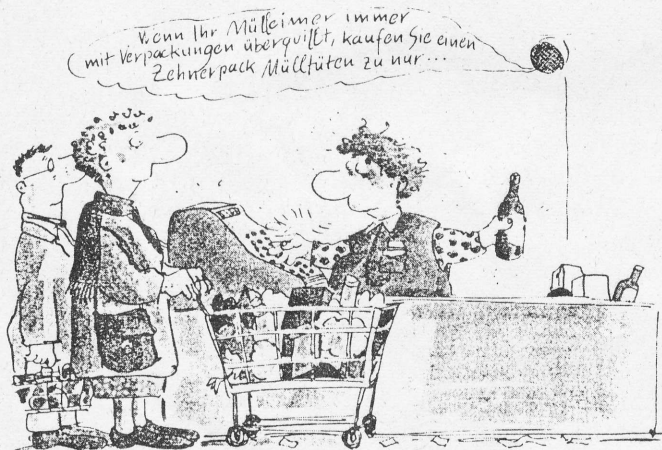 Wenn Ihr Mülleimer immer
mit Verpackungen überquillt, kaufen Sie einen
Zehnerpack Mülltüten zu nur...